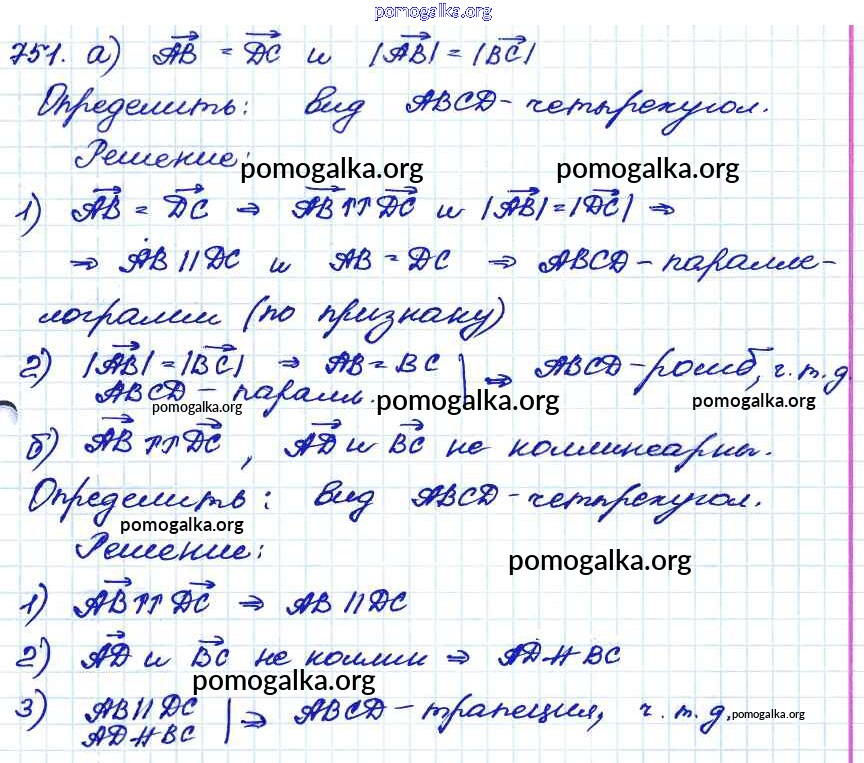 pomogalka.org
751. а) AB = DC и |AB| = |BC|
Определить: вид ABCD - четырехугол.
Решение:
pomogalka.org pomogalka.org
1) AB = DC ⇒ AB ↑↑ DC и |AB| = |DC| ⇒
⇒ AB || DC и AB = DC ⇒ ABCD - паралле-
лограмм (по признаку)
2) |AB| = |BC| ⇒ AB = BC | ⇒ ABCD - ромб, ч. т. д.
ABCD - паралл.
pomogalka.org pomogalka.org pomogalka.org
б) AB ↑↑ DC, AD и BC не коллинеарны.
Определить: вид ABCD - четырехугол.
pomogalka.org
Решение:
pomogalka.org
1) AB ↑↑ DC ⇒ AB || DC
2) AD и BC не коллин ⇒ AD ∦ BC
pomogalka.org
3) AB || DC | ⇒ ABCD - трапеция, ч. т. д.
AD ∦ BC
pomogalka.org